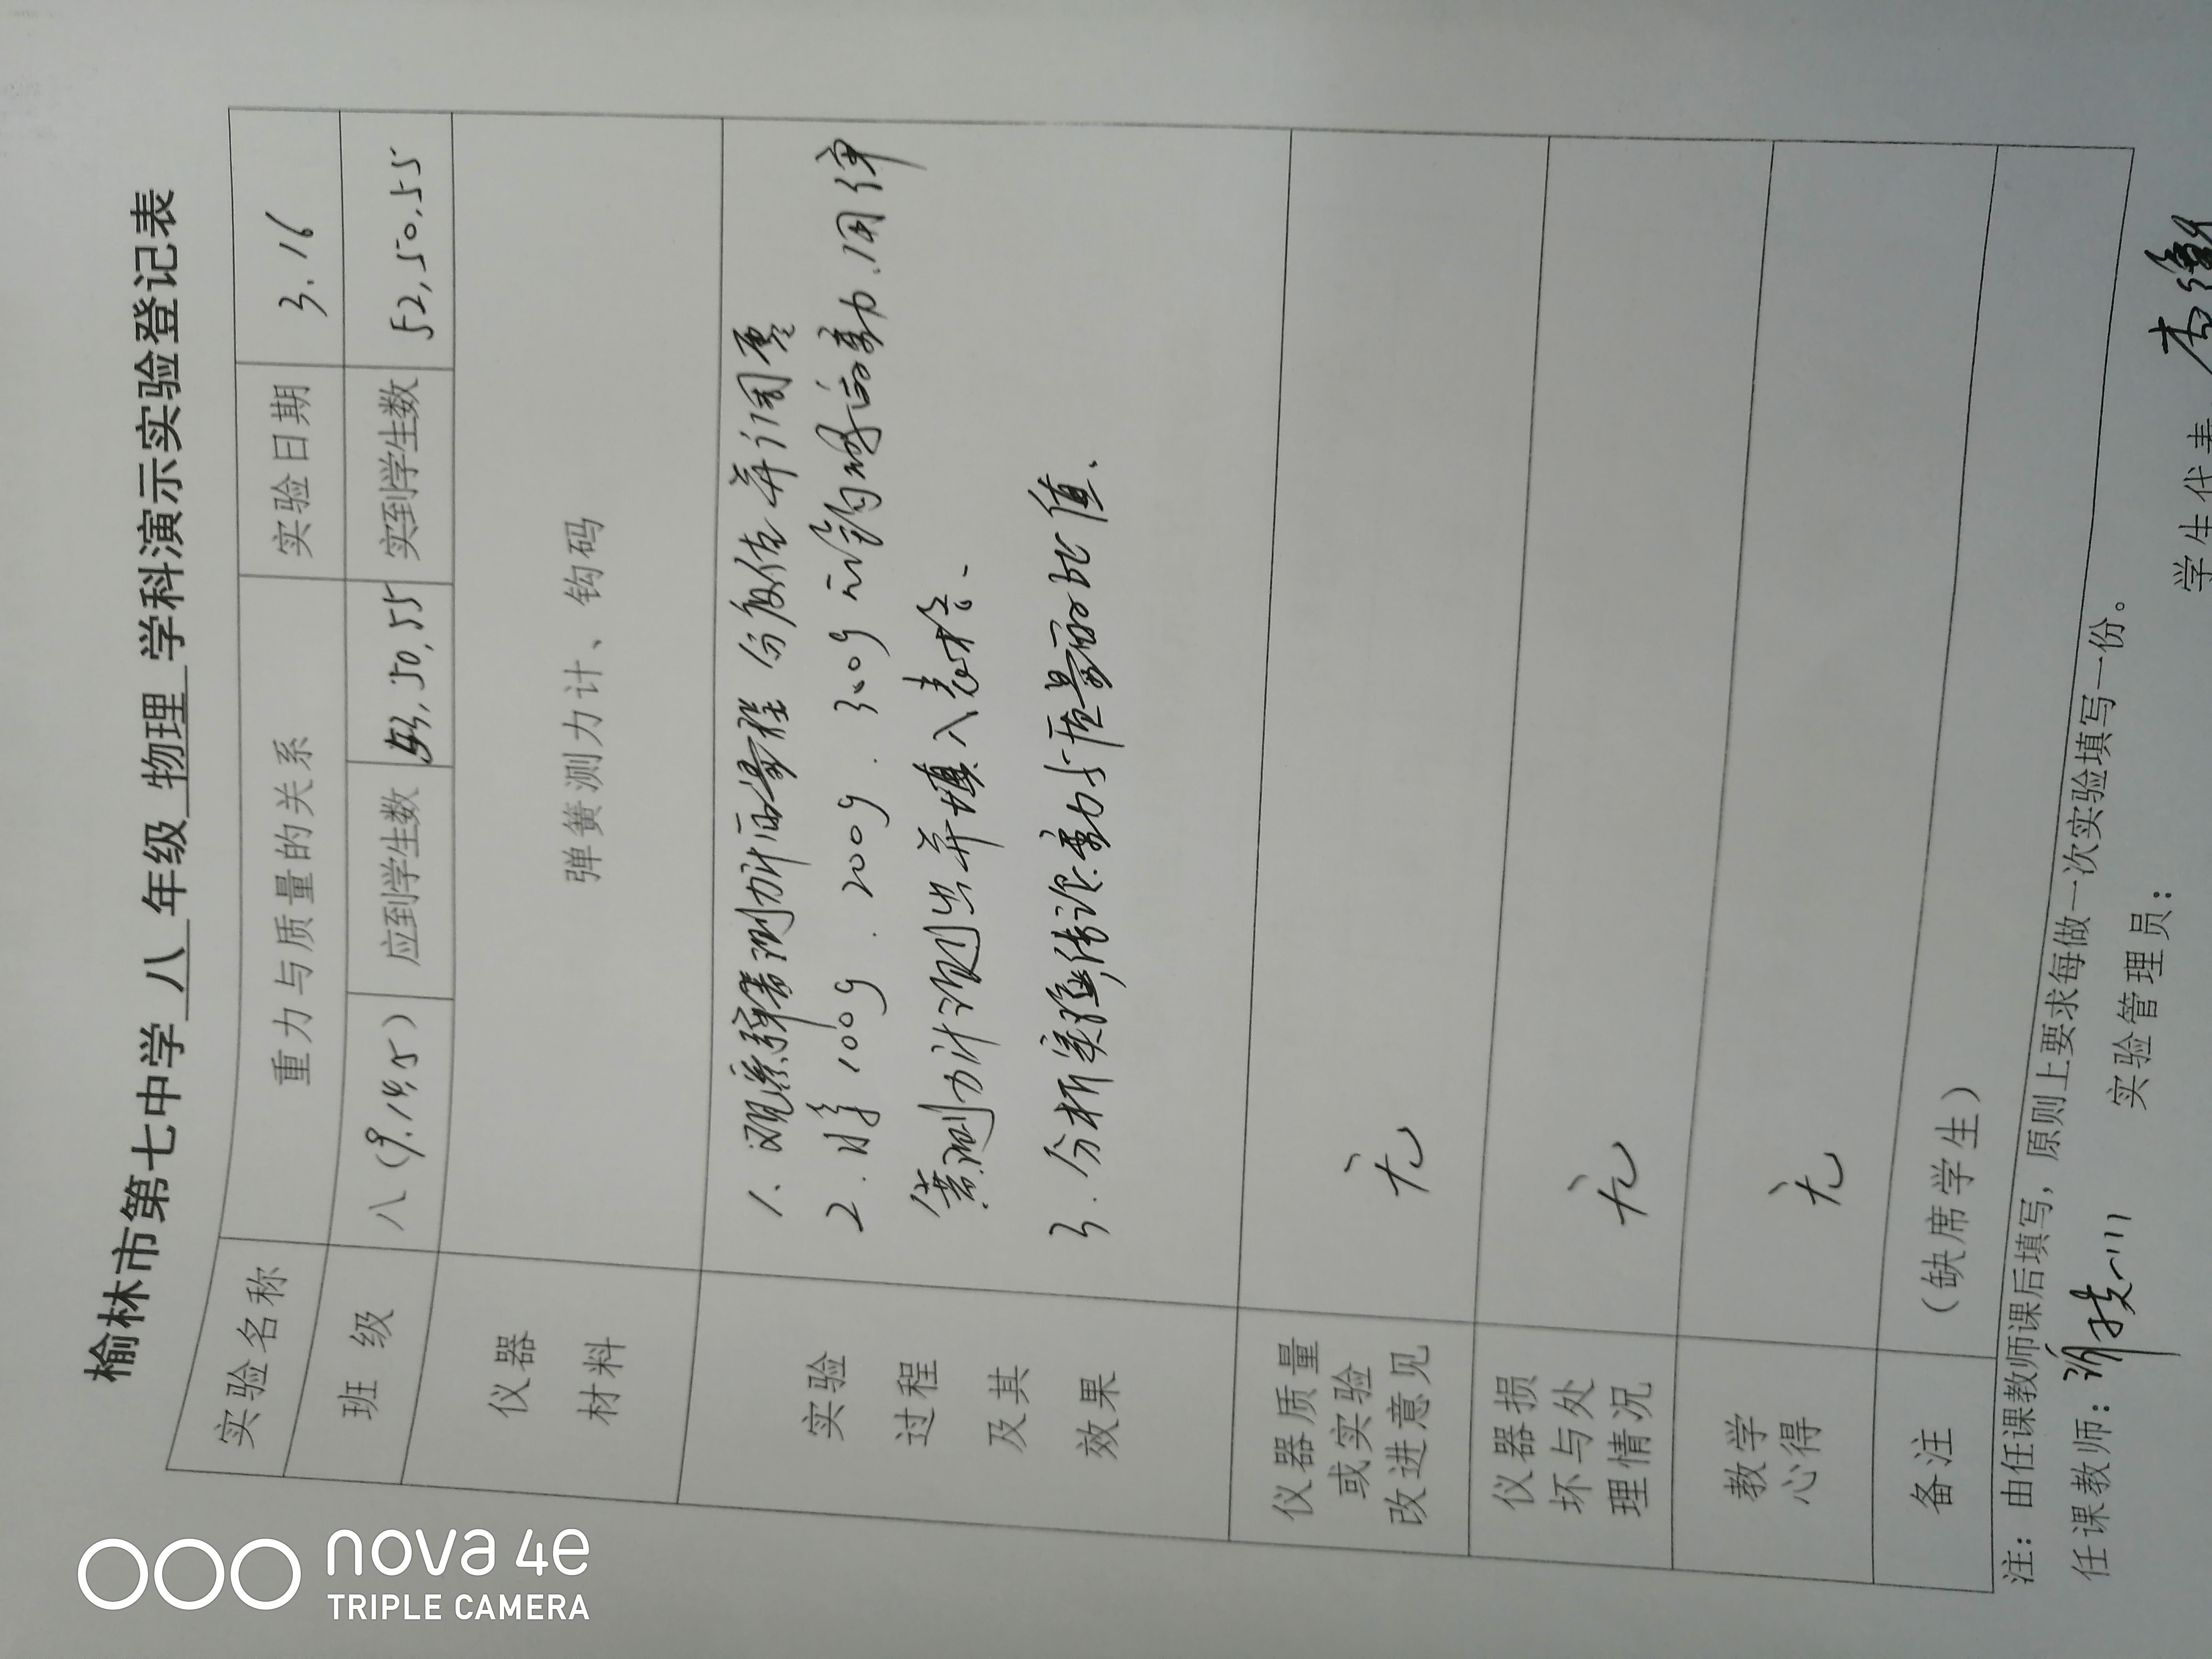 榆林市第七中学 八 年级 物理 学科演示实验登记表
实验名称 重力与质量的关系 实验日期 3.16
班 级 八(9.14,15) 应到学生数 53,50,55 实到学生数 52,50,55
仪器
材料
弹簧测力计、钩码
实验
过程
及其
效果
1、观察弹簧测力计的量程 分度值并调零
2.将100g.200g.300g的钩码的重力.用弹
簧测力计测出并填入表格、
3.分析实验结论:重力与质量的比值、
仪器质量
或实验
改进意见
无
仪器损
坏与处
理情况
无
教学
心得
无
备注 (缺席学生)
注:由任课教师课后填写,原则上要求每做一次实验填写一份。
任课教师: 实验管理员: 学生代表
nova 4e
TRIPLE CAMERA